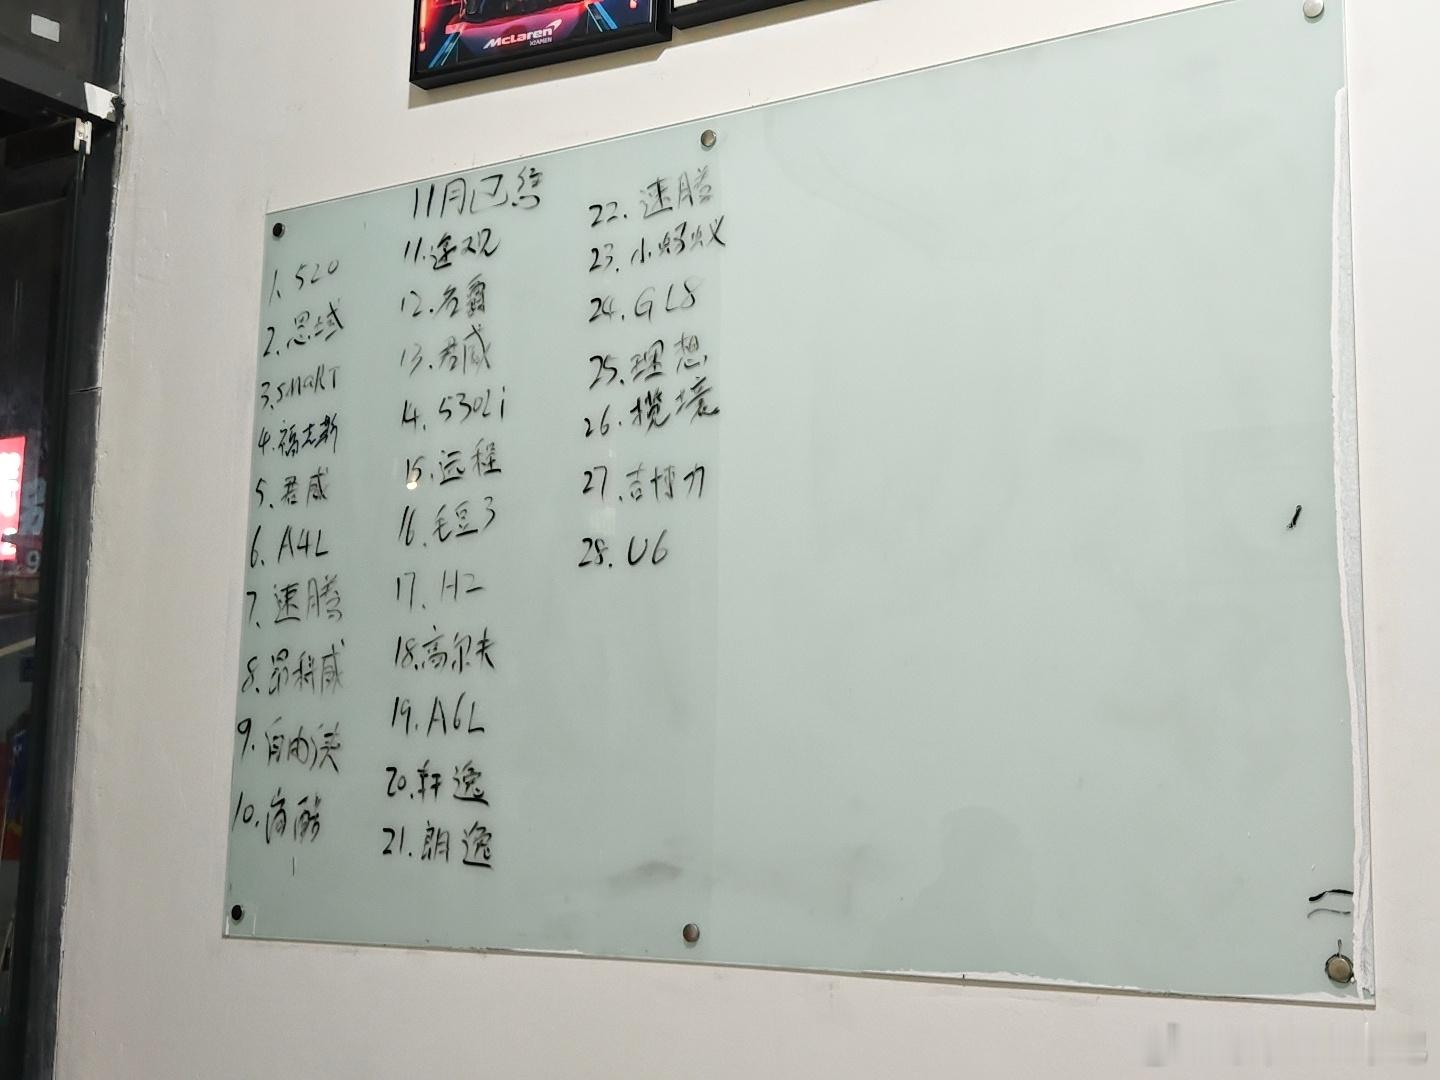 McLaren
XIAMEN
11月已售
1. 520
2. 思域
3. SMART
4. 福克斯
5. 君威
6. A4L
7. 速腾
8. 昂科威
9. 自由侠
10.
11. 途观
12. 名爵
13. 君威
14. 530Li
15. 远程
16. 毛豆3
17. H2
18. 高尔夫
19. A6L
20. 轩逸
21. 朗逸
22. 速腾
23. 小蚂蚁
24. GL8
25. 理想
26. 揽境
27. 吉博力
28. U6